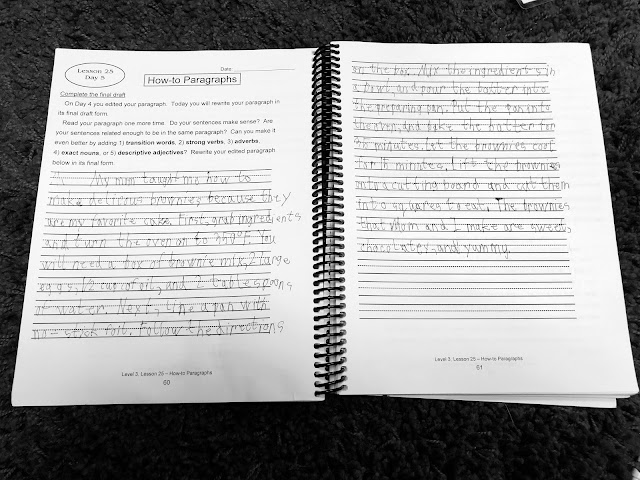 Lesson 25
Day 5
Date
How-to Paragraphs
Complete the final draft
On Day 4 you edited your paragraph. Today you will rewrite your paragraph in
its final draft form.
Read your paragraph one more time. Do your sentences make sense? Are
your sentences related enough to be in the same paragraph? Can you make it
even better by adding 1) transition words, 2) strong verbs, 3) adverbs,
4) exact nouns, or 5) descriptive adjectives? Rewrite your edited paragraph
below in its final form.
My mom taught me how to
make delicious brownies because they
are my favorite cake. First, grab ingredients
and turn the oven on to 350°F. You
will need a box of brownie mix, 2 large
eggs, 1/2 cup of oil, and 2 tablespoons
of water. Next, line a pan with
no-stick foil. Follow the directions
Level 3: Lesson 25 – How-to Paragraphs
60
on the box. Mix the ingredients in
a bowl, and pour the batter into
the preparing pan. Put the pan into
the oven, and bake the batter for
minutes. Let the brownies cool
for 15 minutes. Lift the brownies
onto a cutting board and cut them
into squares to eat. The brownies
that Mom and I make are sweet,
chocolatey, and yummy.
Level 3: Lesson 25 – How-to Paragraphs
61